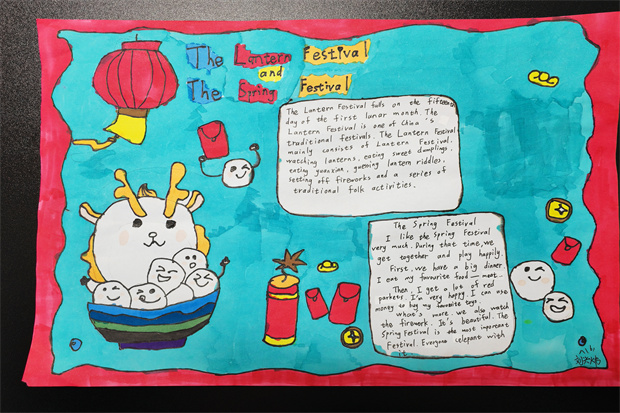 The Lantern Festival
and
The Sring Festival
The Lantern Festival falls on the fifteenth
day of the first lunar month. The
Lantern Festival is one of China's
traditional festivals. The Lantern Festival
mainly consists of Lantern Festival.
watching lanterns, eating sweet dumplings,
eating yuanxiao, guessing lantern riddles,
setting off fireworks and a series of
traditional folk activities.
The Spring Festival
I like the Spring Festival
very much. During that time, we
get together and play happily.
First, we have a big dinner
I eat my favourite food — meat.
Then, I get a lot of red
pockets. I'm very happy. I can use
money to buy my favorite toys.
What's more. we also watch
the firework. It's beautiful. The
Spring Festival is the most important
Festival. Everyone celepant with
it